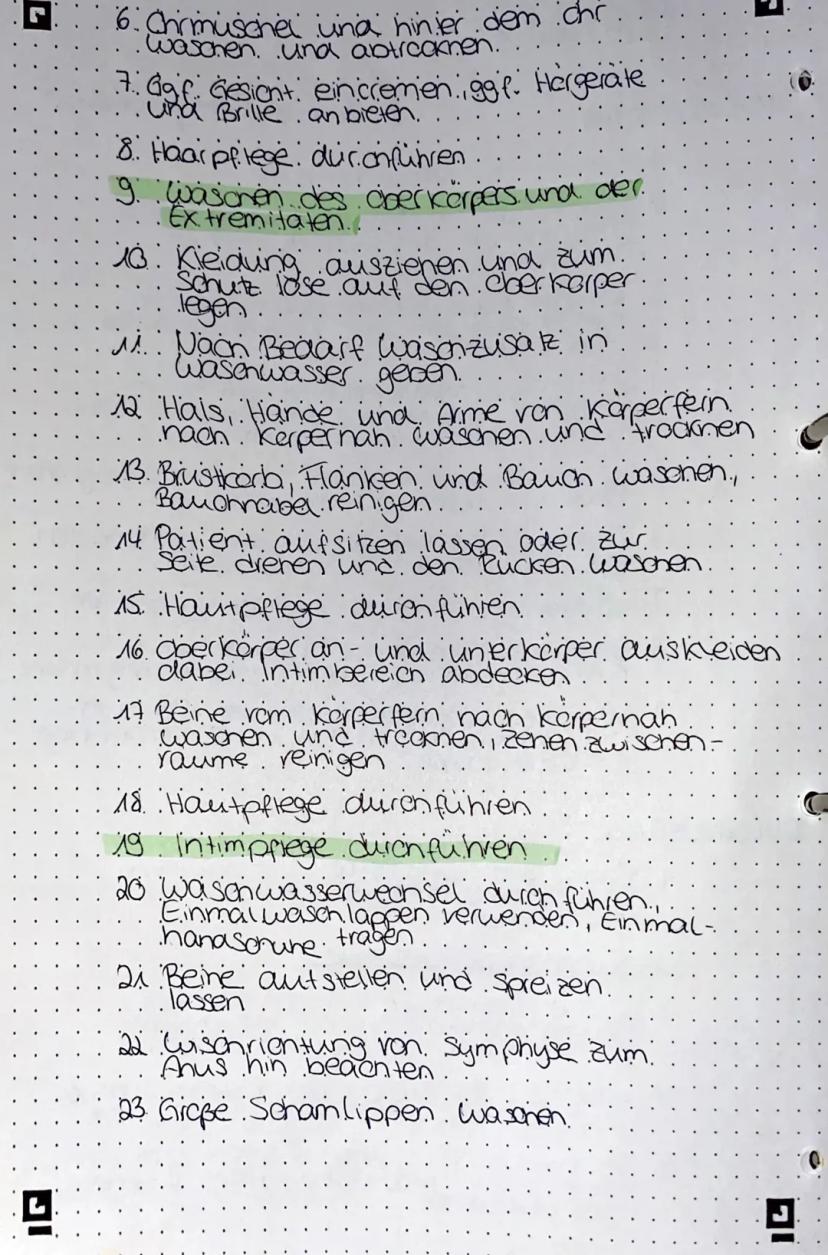 6. Ohrmuschel und hinter dem Ohr
waschen und abtrocknen.
7. Ggf. Gesicht eincremen, ggf. Hörgeräte
und Brille anbieten.
8. Haarpflege durchführen
9. Waschen des Oberkörpers und der
Extremitäten.
10. Kleidung ausziehen und zum
Schutz lose auf den Oberkörper
legen.
11. Nach Bedarf Waschzusatz in
Waschwasser geben.
12 Hals, Hände und Arme von körperfern
nach körpernah waschen und trocknen
13. Brustkorb, Flanken und Bauch waschen,
Bauchnabel reinigen.
14. Patient aufsitzen lassen oder zur
Seite drehen und den Rücken waschen
15. Hautpflege durchführen
16. Oberkörper an- und unterkörper auskleiden
dabei Intimbereich abdecken
17 Beine vom körperfern nach körpernah
waschen und trocknen, zehen zwischen-
räume reinigen
18. Hautpflege durchführen
19. Intimpflege durchführen
20 Waschwasserwechsel durchführen,
Einmalwaschlappen verwenden, Einmal-
handschuhe tragen
21 Beine aufstellen und spreizen
lassen
22 Wischrichtung von Symphyse zum
Anus hin beachten
23 Große Schamlippen waschen